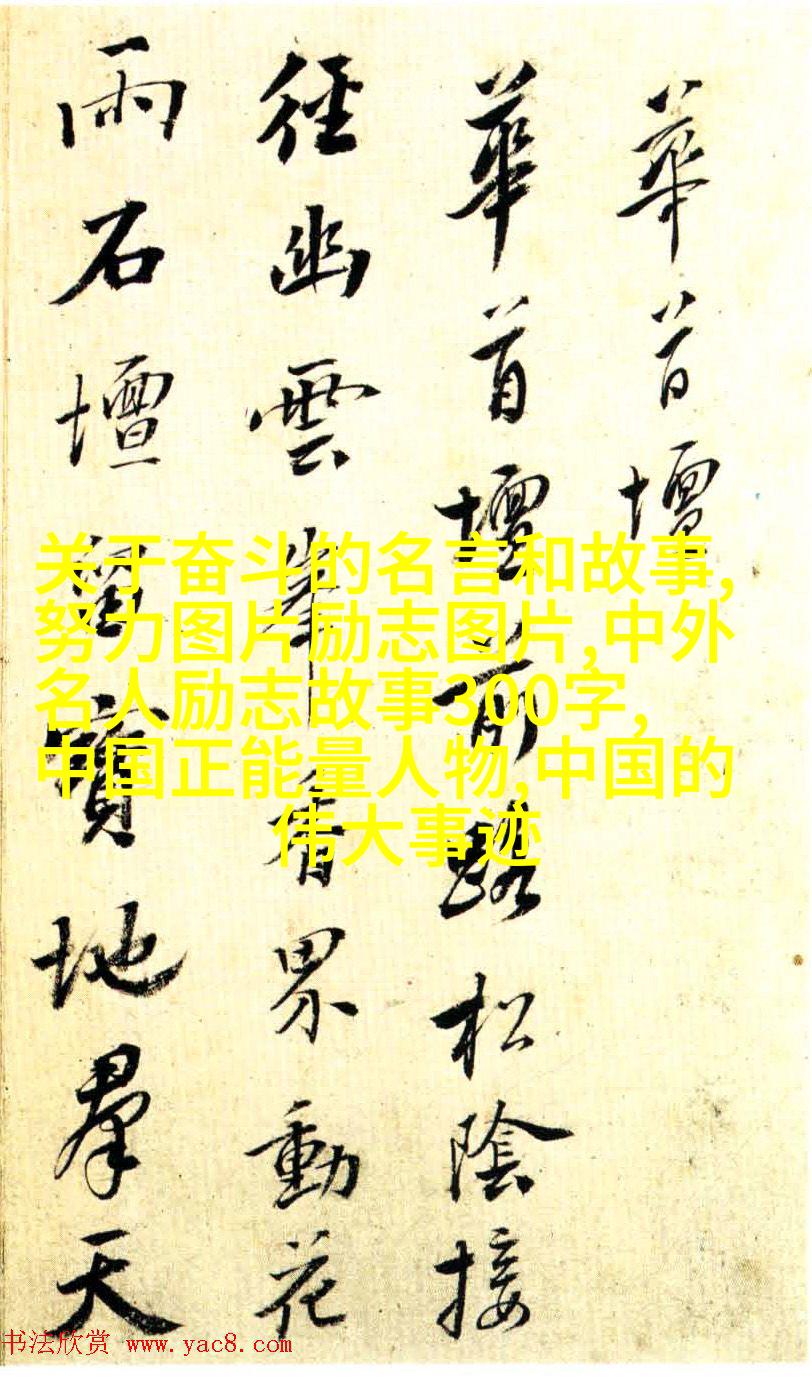 華首壇
華首壇前路松陰接
徑幽雲峯香界動花
雨石壇留寶地羣天
关于奋斗的名言和故事,
努力图片励志图片,中外
名人励志故事300字,
中国正能量人物,中国的
伟大事迹
书法欣赏 www.yac8.com